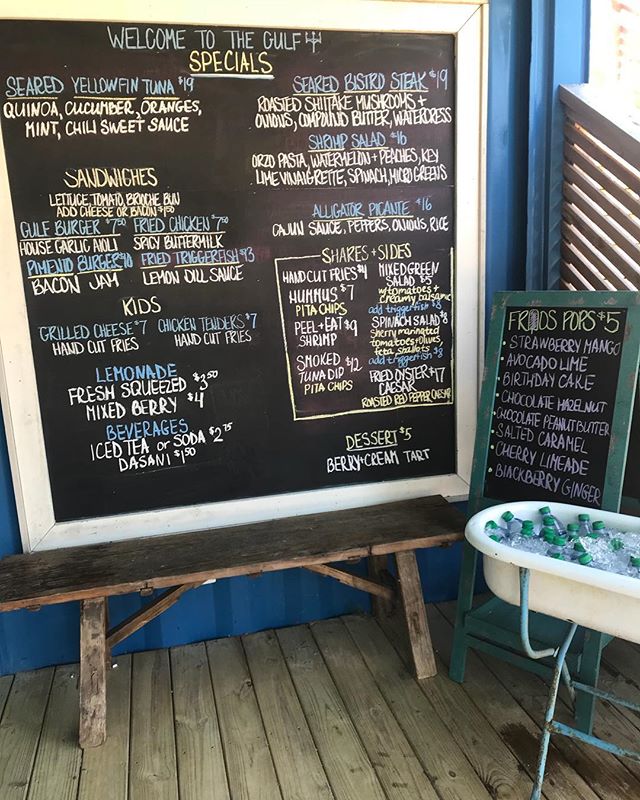 WELCOME TO THE GULF
SPECIALS
SEARED YELLOWFIN TUNA $19
QUINOA, CUCUMBER, ORANGES,
MINT, CHILI SWEET SAUCE
SEARED BISTRO STEAK $19
ROASTED SHIITAKE MUSHROOMS +
ONIONS, COMPOUND BUTTER, WATERCRESS
SHRIMP SALAD $16
ORZO PASTA, WATERMELON + PEACHES, KEY
LIME VINAIGRETTE, SPINACH, MICRO GREENS
ALLIGATOR PICANTE $16
CAJUN SAUCE, PEPPERS, ONIONS, RICE
SANDWICHES
LETTUCE, TOMATO, BRIOCHE BUN
ADD CHEESE OR BACON $1.50
GULF BURGER $7.50 FRIED CHICKEN $7.50
HOUSE GARLIC AIOLI SPICY BUTTERMILK
PIMENTO BURGER $10 FRIED TRIGGERFISH $13
BACON JAM LEMON DILL SAUCE
KIDS
GRILLED CHEESE $7 CHICKEN TENDERS $7
HAND CUT FRIES HAND CUT FRIES
LEMONADE
FRESH SQUEEZED $3.50
MIXED BERRY $4
BEVERAGES
ICED TEA OR SODA $2.75
DASANI $1.50
SHARES + SIDES
HAND CUT FRIES $4
HUMMUS $7
PITA CHIPS
PEEL + EAT $9
SHRIMP
SMOKED $12
TUNA DIP
PITA CHIPS
MIXED GREEN
SALAD $5
w/tomatoes +
creamy balsamic
add triggerfish $8
SPINACH SALAD $8
sherry marinated
tomatoes + olives,
feta, shallots
add triggerfish $8
FRIED OYSTER $17
CAESAR
ROASTED RED PEPPER CAESAR
DESSERT $5
BERRY + CREAM TART
FROOS POPS $5
• STRAWBERRY MANGO
• AVOCADO LIME
• BIRTHDAY CAKE
• CHOCOLATE HAZELNUT
• CHOCOLATE PEANUT BUTTER
• SALTED CARAMEL
• CHERRY LIMEADE
• BLACKBERRY GINGER